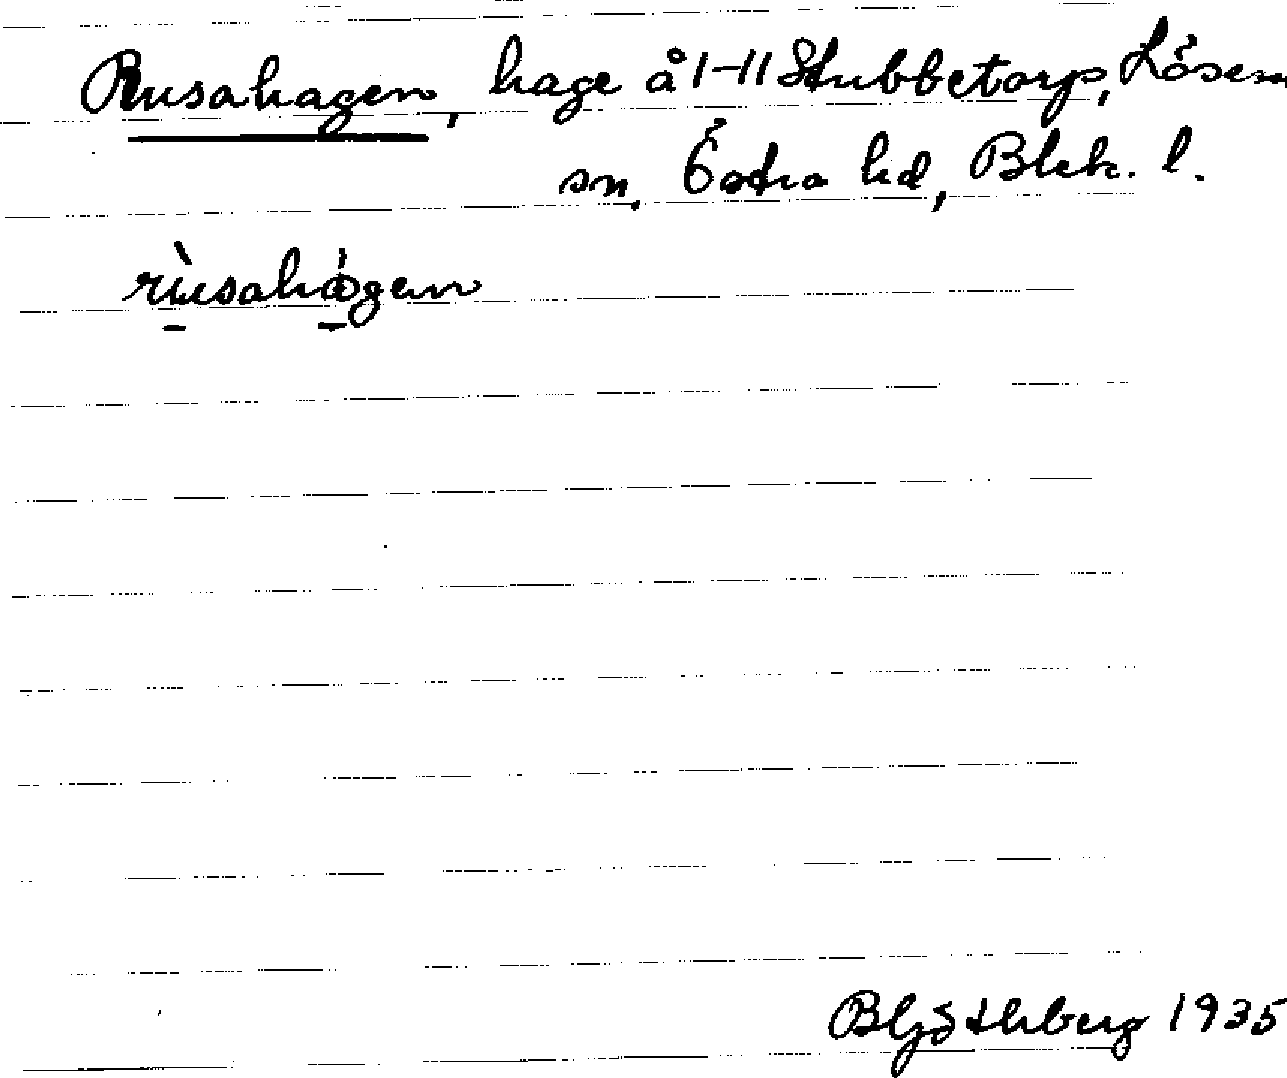 Rusahagen, hage å 1-11 Stubbetorp, Lösens
sn, Östra hd, Blek. l.
rùsahágen
1935